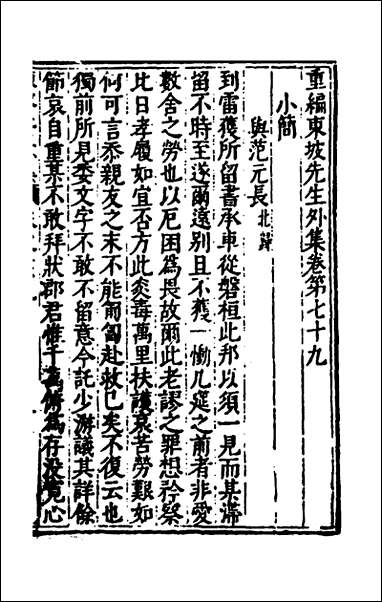 重編東坡先生外集卷第七十九
小簡
與范元長北歸
到雷獲所留書承車從磐桓此邦以須一見而某滯
留不時至遂爾遠別且不獲一慟几筵之前者非愛
數舍之勞也以厄困爲畏故爾此老謬之罪想矜察
比日孝履如宜否方此炎毒萬里扶護哀苦勞艱如
何可言忝親友之末不能匍匐赴救已矣不復云也
獨前所見委文字不敢不留意今託少游議其詳餘
節哀自重某不敢拜狀郡君惟千萬俯爲存没寬心